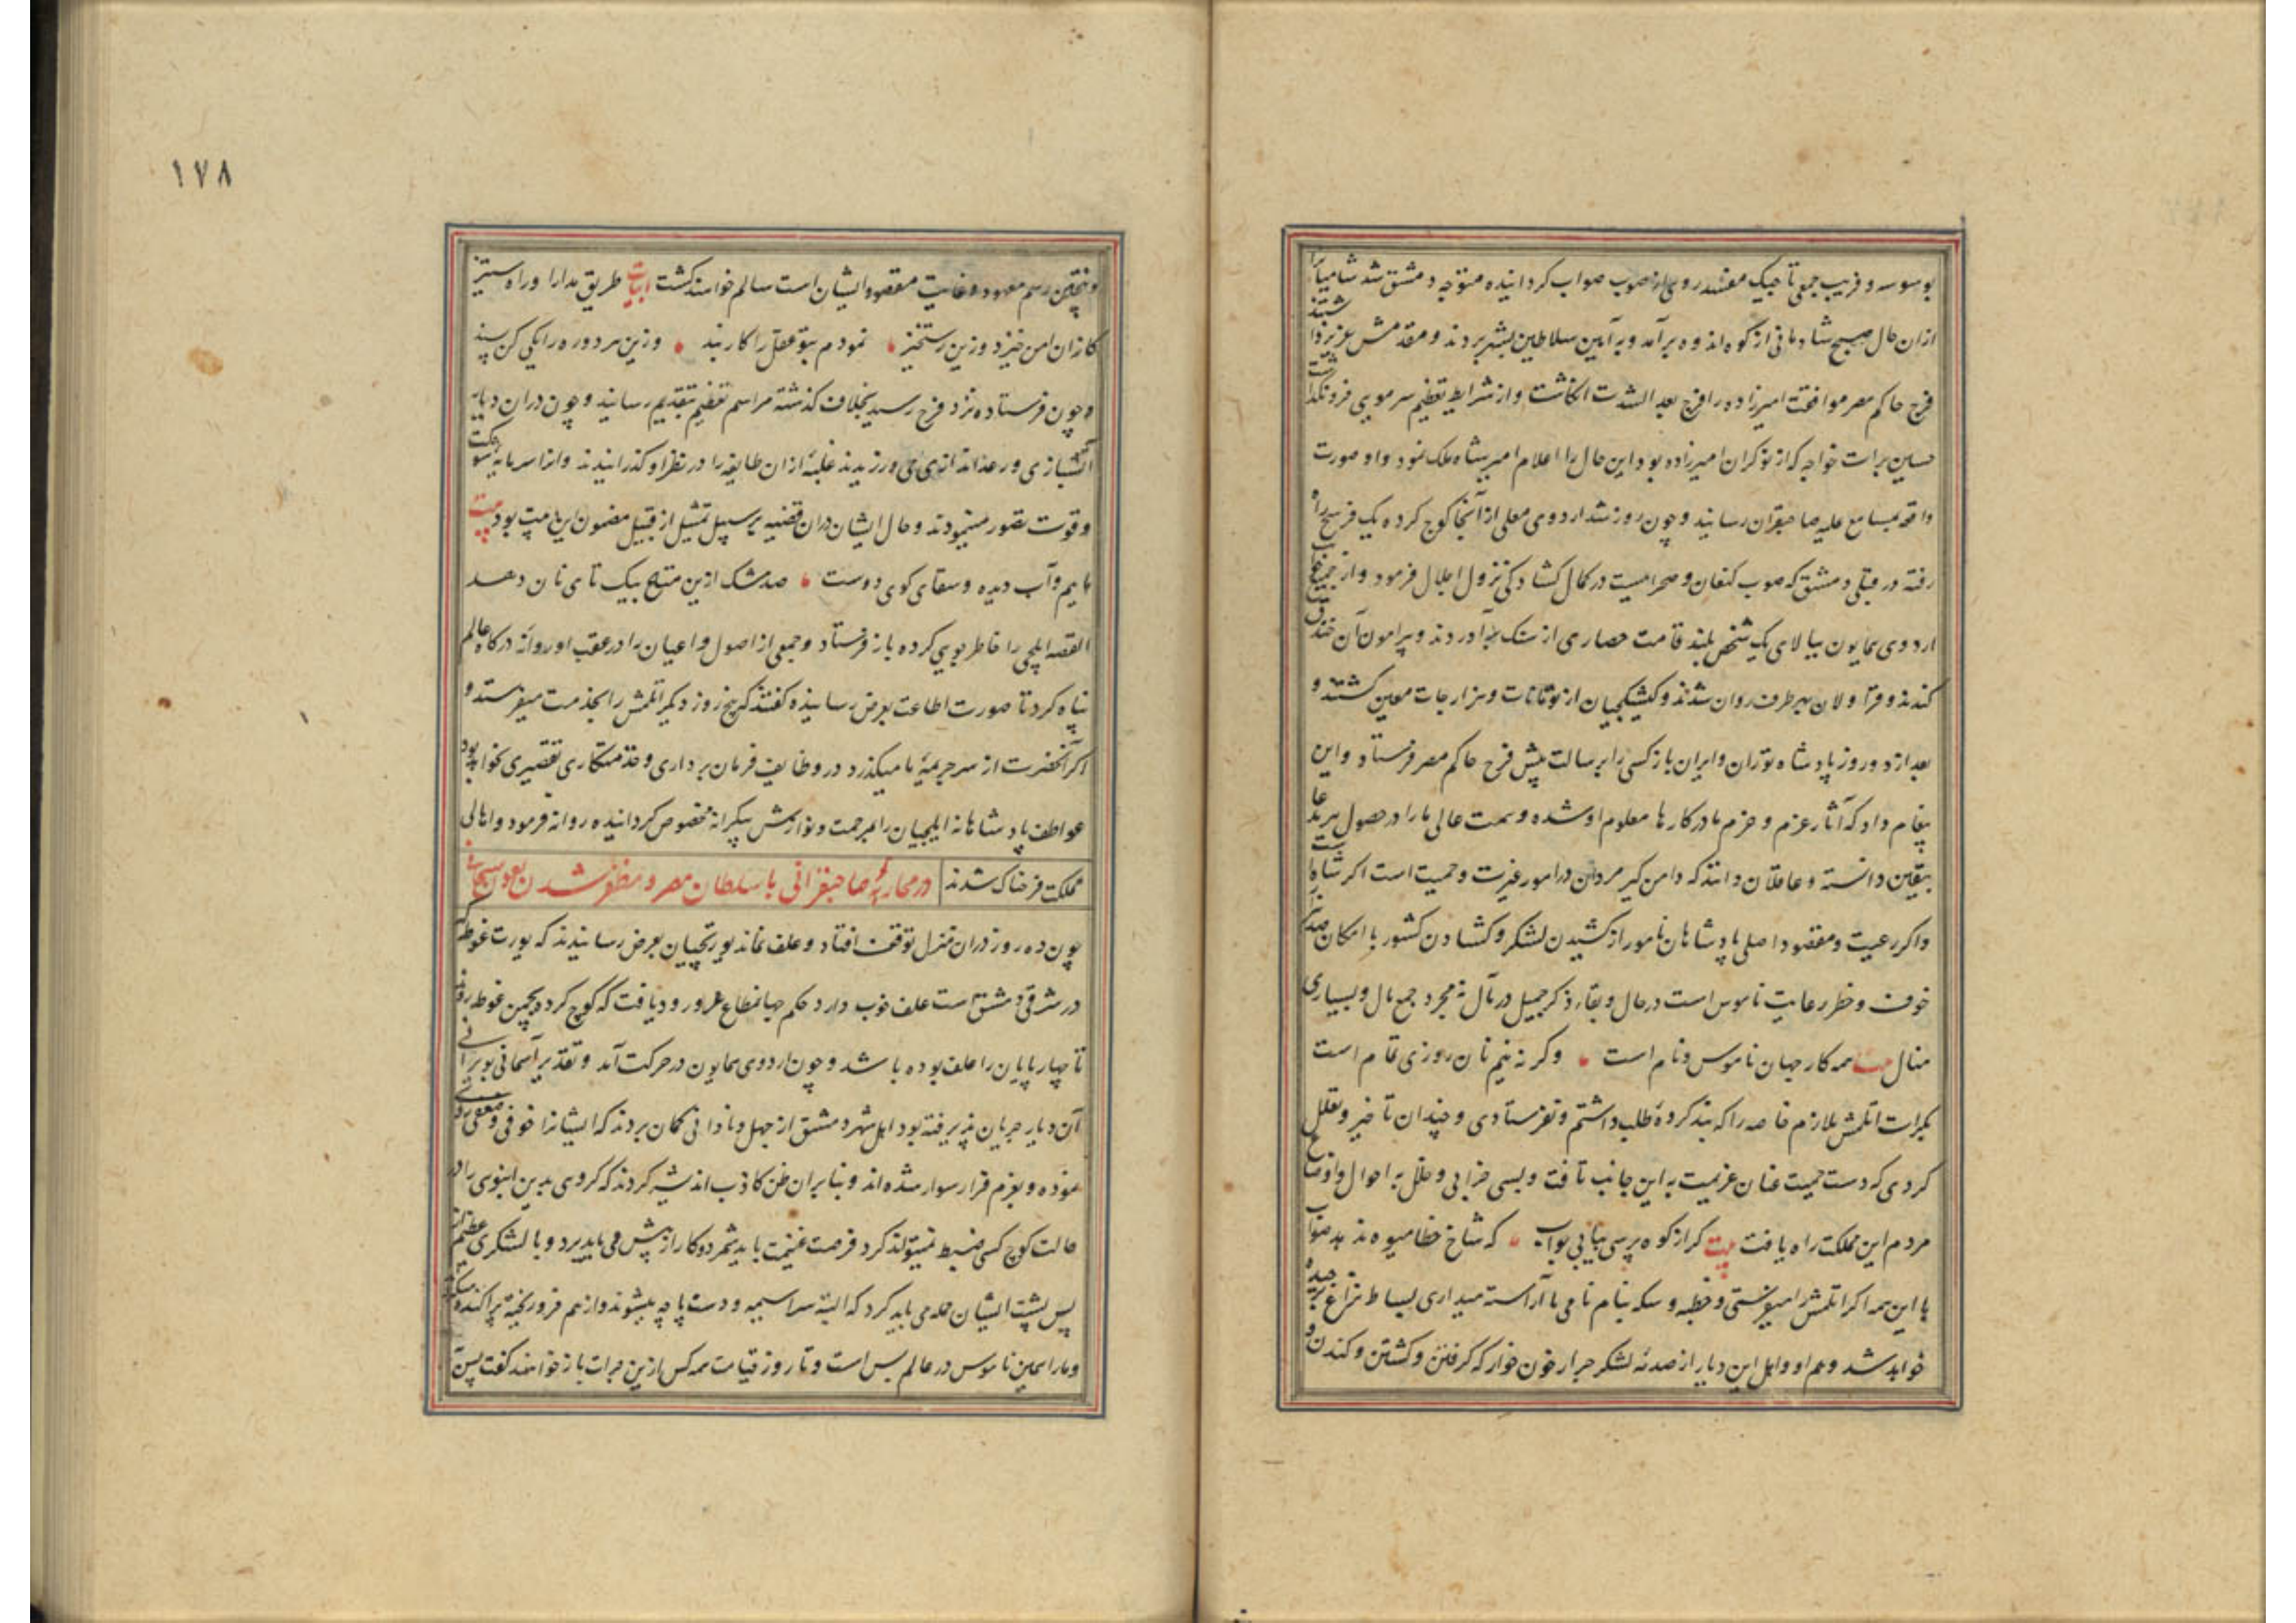 بوسوسه و فریب جمعی تاجیک مفسد روی از صوب صواب کردانیده متوجه دمشق شد شامیانرا
ازان حال صبح شادمانی از کوه اندوه برآمد و به آیین سلاطین بشهر بردند و مقدمش عزیز داشتند
فرج حاکم مصر موافقت امیرزاده را فرج بعد الشدت انکاشت و از شرایط تعظیم سر مویی فرو نکذاشت
حسین برات خواجه که از نوکران امیرزاده بود این حال را اعلام امیر شاه ملک نمود و او صورت
واقعه بمسامع علیه صاحبقران رسانید و چون روز شد اردوی معلی از آنجا کوچ کرده یک فرسخ راه
رفته در قبلی دمشق که صوب کنعان و صحراییست در کمال کشادکی نزول اجلال فرمود و از جمیع جوانب
اردوی همایون ببالای یک شخص بلند قامت حصاری از سنک برآوردند و پیرامون آن خندق
کندند و قراولان بهر طرف روان شدند و کشیکچیان از تومانات و هزارجات معین کشتند و
بعد از دو روز پادشاه توران و ایران باز کسی را برسالت پیش فرج حاکم مصر فرستاد و این
پیغام داد که آثار عزم و حزم ما در کارها معلوم او شده و همت عالی ما را در حصول هر مدعا
بیقین دانسته و عاقلان دانند که دامن کیر مردان در امور غیرت و حمیت است اکر شاه است
و اکر رعیت و مقصود اصلی پادشاهان نامور از کشیدن لشکر و کشادن کشور با امکان صد کونه
خوف و خطر رعایت ناموس است در حال و بقاء ذکر جمیل در مآل نه مجرد جمع مال و بسیاری
منال بیت همه کار جهان ناموس و نام است وکرنه نیم نان روزی تمام است
بکرات اتلمش ملازم خاصه را که بند کرده طلب داشتم و نفرستادی و چندان تاخیر و تعلل
کردی که دست حمیت عنان عزیمت به این جانب تافت و بسی خرابی و خلل به احوال و اوضاع
مردم این مملکت راه یافت بیت کر از کوه پرسی بیابی جواب که شاخ خطا میوه ندهد صواب
با این همه اکر اتلمش را میفرستی و خطبه و سکه بنام نامی ما آراسته میداری بساط نزاع برچیده
خواهد شد و هم او و اهل این دیار از صدمه لشکر جرار خون خوار که کرفتن و کشتن و کندن و
رسم معهود و غایت مقصود ایشان است سالم خواهند کشت ابیات طریق مدارا و راه ستیز
کزان امن خیزد وزین رستخیز نمودم بتو عقل را کار بند وزین هر دو ره را یکی کن پسند
و چون فرستاده نزد فرج رسید بخلاف کذشته مراسم تعظیم بتقدیم رسانید و چون دران دیار
آتشبازی و رعداندازی می ورزیدند غلبه ازان طایفه را در نظر او کذرانیدند و انرا سرمایه شوکت
و قوت تصور مینمودند و حال ایشان دران قضیه بر سبیل تمثیل از قبیل مضمون این بیت بود بیت
ماییم و آب دیده و سقای کوی دوست صد مشک ازین متاع بیک تای نان دهد
القصه ایلچی را خاطرجویی کرده باز فرستاد و جمعی از اصول و اعیان را در عقب او روانه درکاه عالم
پناه کرد تا صورت اطاعت بعرض رسانیده کفتند که پنج روز دیکر اتلمش را بخدمت میفرستد و
اکر آنحضرت از سر جریمه ما میکذرد در وظایف فرمان برداری و خدمتکاری تقصیری نخواهد بود
عواطف پادشاهانه ایلچیان را بمرحمت و نوازش بیکرانه مخصوص کردانیده روانه فرمود و اهالی
مملکت فرحناک شدند در محاربه صاحبقرانی با سلطان مصر و مظفر شدن بعون سبحانی
چون ده روز دران منزل توقف افتاد و علف نماند یورتچیان بعرض رسانیدند که یورت غوطه که
در شرقی دمشق است علف خوب دارد حکم جهانمطاع عز ورود یافت که کوچ کرده بچمن غوطه روند
تا چهارپایان را علف بوده باشد و چون اردوی همایون در حرکت آمد و تقدیر آسمانی بویرانی
آن دیار جریان پذیرفته بود اهل شهر دمشق از جهل و نادانی کمان بردند که ایشانرا خوفی و ضعفی روی
نموده و بعزم فرار سوار شده اند و بنا بران ظن کاذب اندیشه کردند که کروهی بدین انبوهی را در
حالت کوچ کسی ضبط نمیتواند کرد فرصت غنیمت باید شمرد و کار از پیش می باید برد و با لشکری عظیم از
پس پشت ایشان حمله می باید کرد که البته سراسیمه و دست پاچه میشوند و از هم فرو ریخته پراکنده میکردند
و مارا همین ناموس در عالم بس است و تا روز قیامت همه کس ازین جرات باز خواهند کفت پس
١٧٨